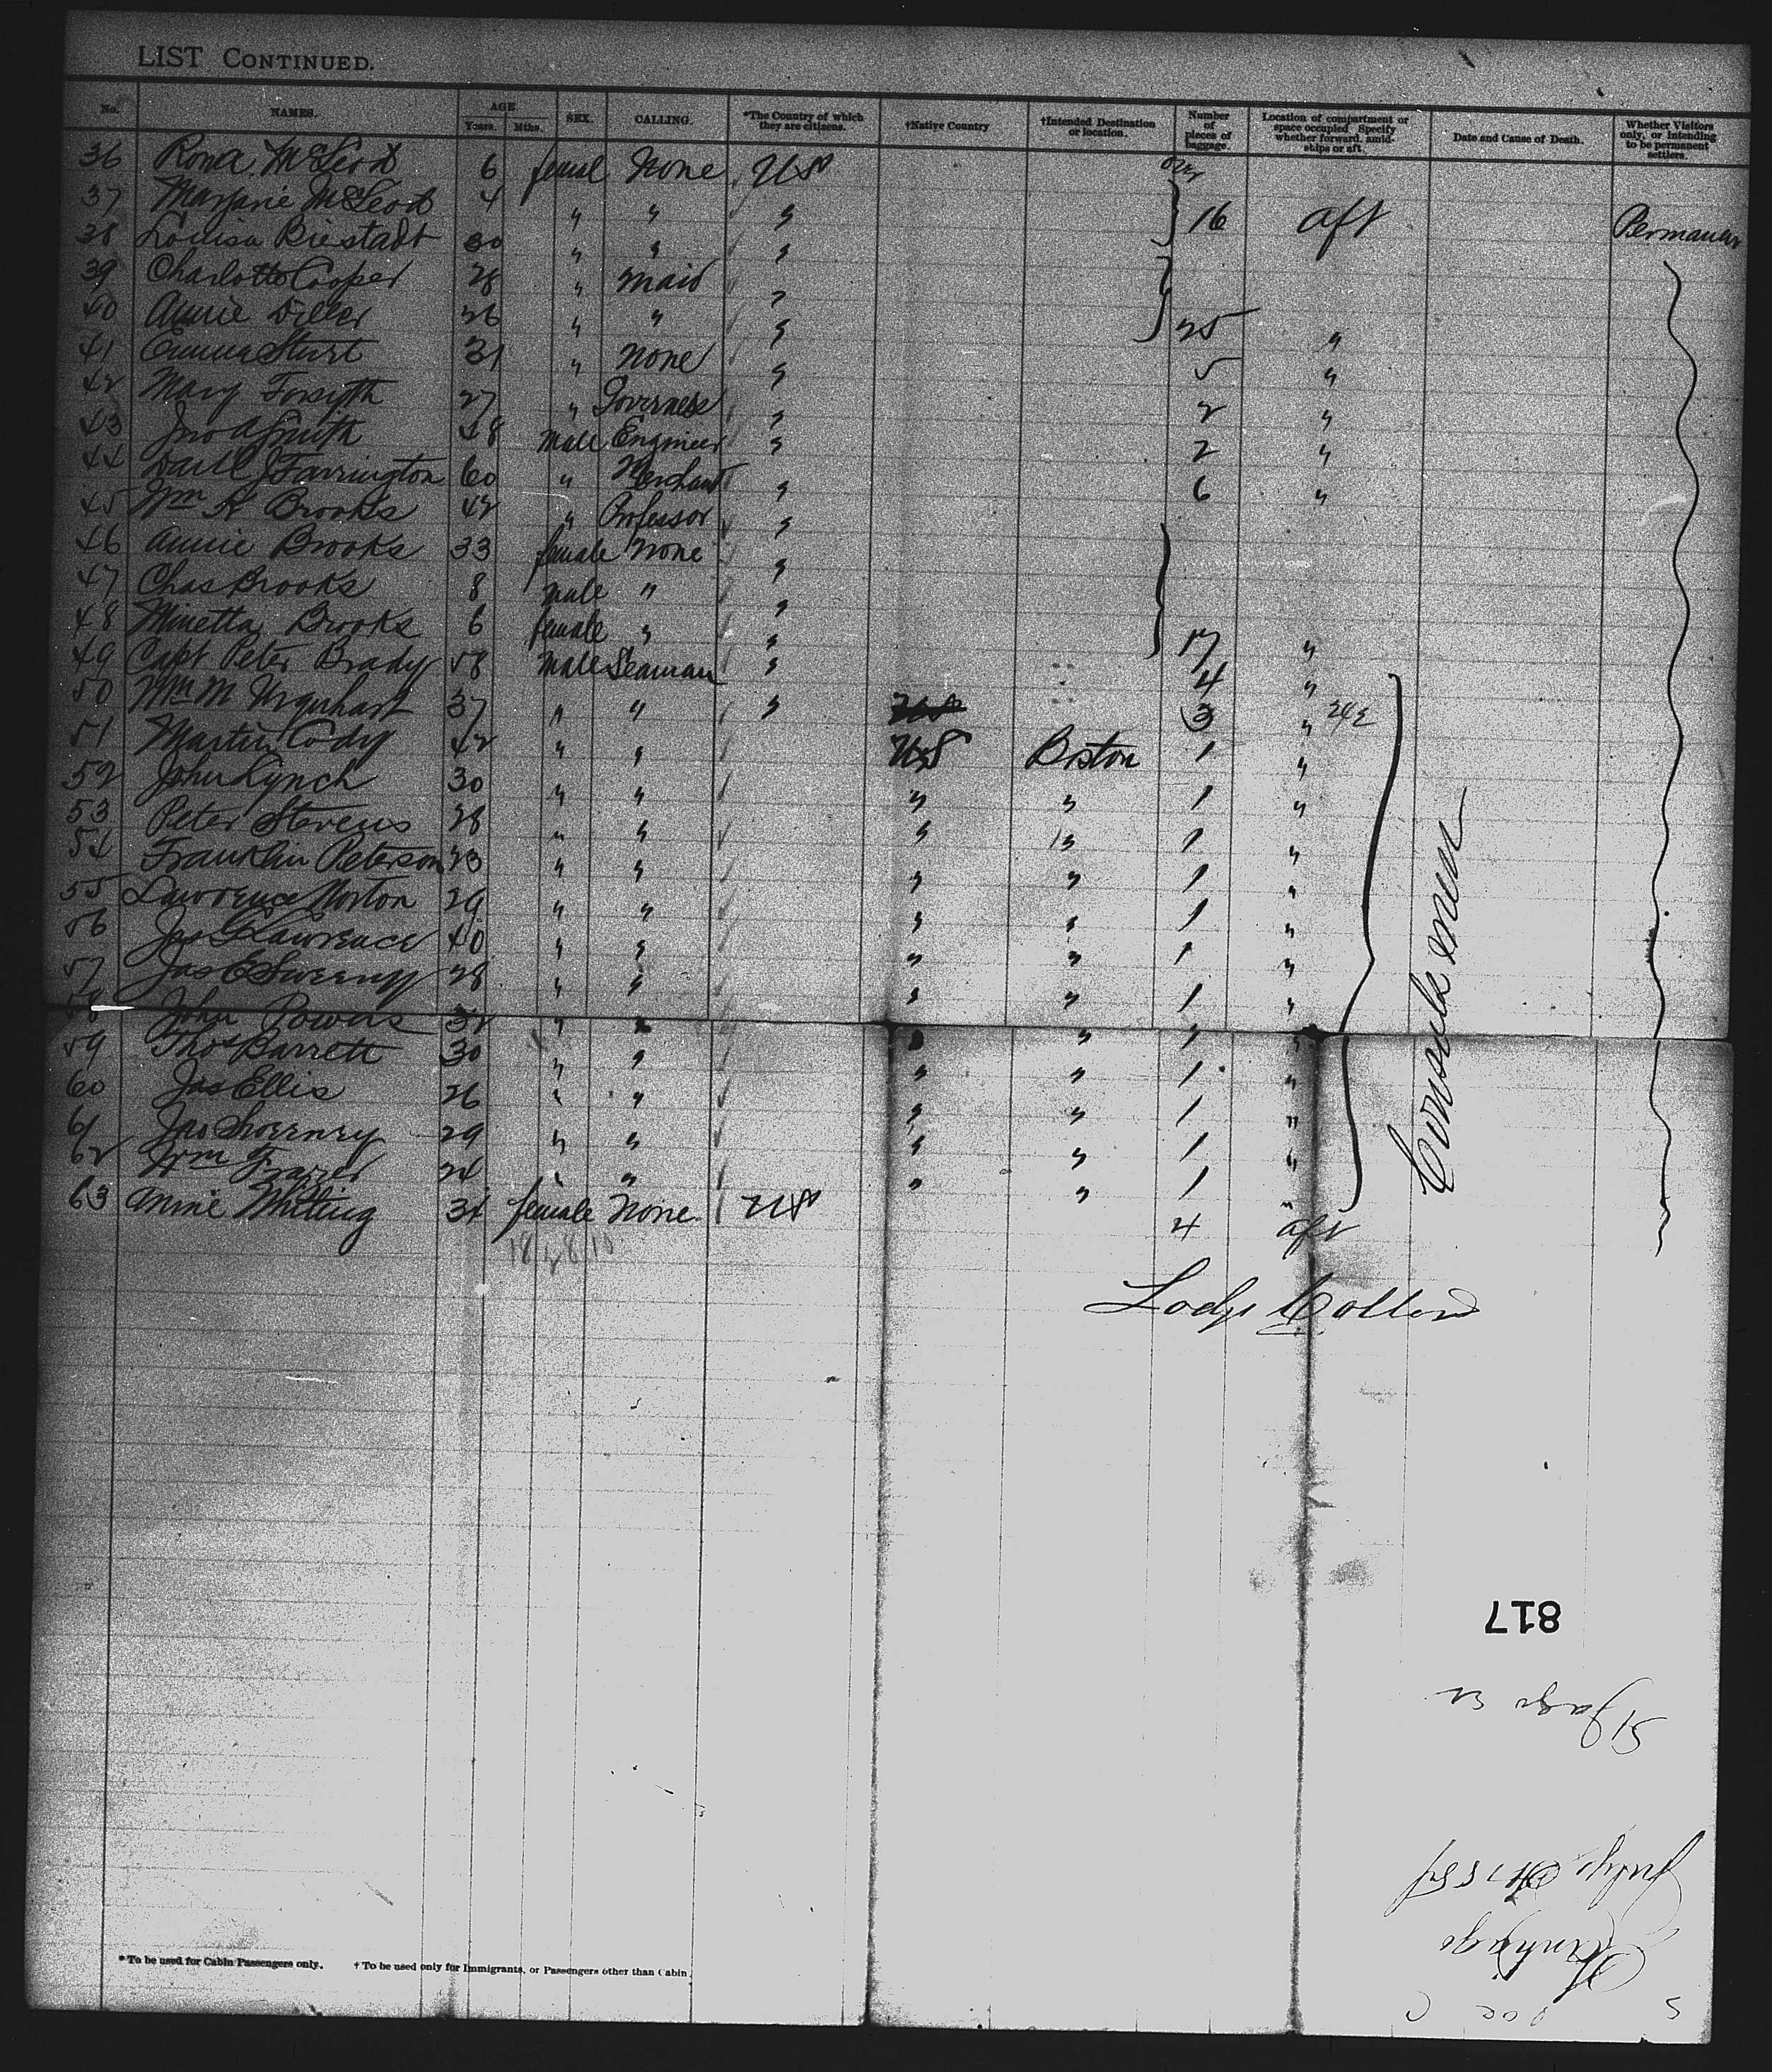 LIST CONTINUED.
No. NAMES. AGE Years. Mths. SEX. CALLING. *The Country of which they are citizens. †Native Country †Intended Destination or location. Number of pieces of baggage. Location of compartment or space occupied. Specify whether forward, amidships or aft. Date and Cause of Death. Whether Visitors only, or intending to be permanent settlers.
36 Rona McLeod 6 female None US
37 Marjorie McLeod 4 " " " 16 aft Permanent
38 Louisa Biestadt 30 " " "
39 Charlotte Cooper 28 " Maid "
40 Annie Diller 26 " " " 25 "
41 Emma Sturt 31 " None " 5 "
42 Mary Forsyth 27 " Governess " 2 "
43 Jno A Smith 48 Male Engineer " 2 "
44 Danl J Farrington 60 " Merchant " 6 "
45 Wm K Brooks 42 " Professor "
46 Annie Brooks 33 female None "
47 Chas Brooks 8 male " "
48 Minetta Brooks 6 female " " 17 "
49 Capt Peter Brady 58 Male Seaman " 4 "
50 Wm M Urquhart 37 " " " 3 "
51 Martin Cody 42 " " US Boston 1 "
52 John Lynch 30 " " " " 1 "
53 Peter Stevens 28 " " " " 1 "
54 Franklin Peterson 23 " " " " 1 "
55 Lawrence Norton 29 " " " " 1 "
56 Jas Lawrence 40 " " " " 1 "
57 Jas E Sweeney 28 " " " " 1 "
58 John Powers 32 " " " " 1 "
59 Thos Barrett 30 " " " " 1 "
60 Jas Ellis 26 " " " " 1 "
61 Jno Sweeney 29 " " " " 1 "
62 Wm Frazer 24 " " " " 1 "
63 Mine Whiting 34 female None US 4 aft
Consule men
817
*To be used for Cabin Passengers only. †To be used only for Immigrants, or Passengers other than Cabin.